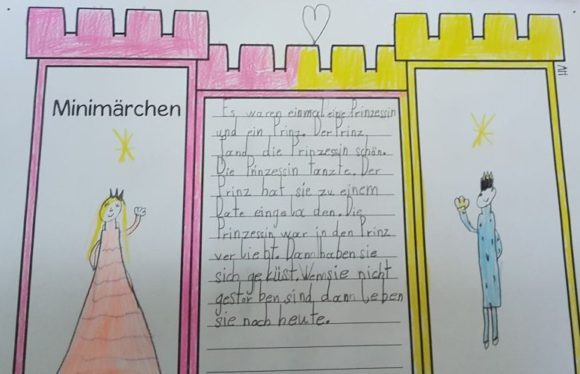 Minimärchen
Es waren einmal eine Prinzessin
und ein Prinz. Der Prinz
fand die Prinzessin schön.
Die Prinzessin tanzte. Der
Prinz hat sie zu einem
Date eingela den. Die
Prinzessin war in den Prinz
ver liebt. Dann haben sie
sich geküst. Wenn sie nicht
gestor ben sind dann leben
sie noch heute.